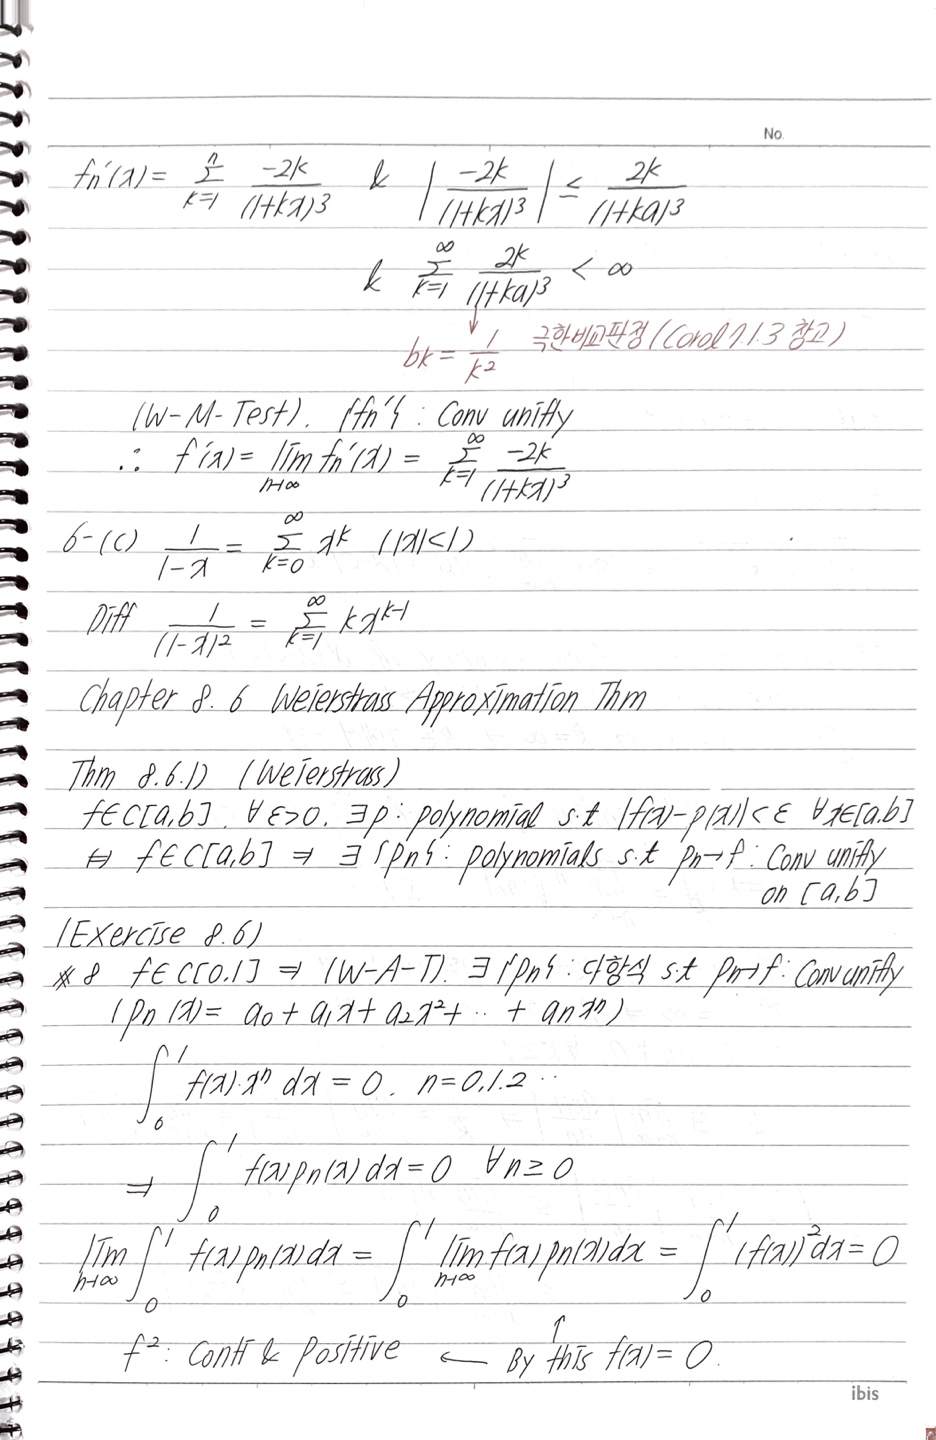 No.
fn'(x) = Σ_{k=1}^{n} -2k/(1+kx)^3 & |-2k/(1+kx)^3| ≤ 2k/(1+ka)^3
& Σ_{k=1}^{∞} 2k/(1+ka)^3 < ∞
↓
bk = 1/k^2 극한비교판정(Corol 7.1.3 참고)
(W-M-Test). {fn'} : Conv unifly
∴ f'(x) = lim_{n→∞} fn'(x) = Σ_{k=1}^{∞} -2k/(1+kx)^3
6-(c) 1/(1-x) = Σ_{k=0}^{∞} x^k (|x|<1)
Diff 1/(1-x)^2 = Σ_{k=1}^{∞} kx^{k-1}
Chapter 8.6 Weierstrass Approximation Thm
Thm 8.6.1) (Weierstrass)
f∈C[a,b]. ∀ε>0. ∃p : polynomial s.t |f(x)-p(x)|<ε ∀x∈[a,b]
⇔ f∈C[a,b] ⇒ ∃{pn} : polynomials s.t pn→f : Conv unifly
on [a,b]
(Exercise 8.6)
※8 f∈C[0,1] ⇒ (W-A-T). ∃{pn} : 다항식 s.t pn→f : Conv unifly
(pn(x) = a0 + a1x + a2x^2 + ·· + anx^n)
∫_0^1 f(x)·x^n dx = 0. n=0.1.2 ··
⇒ ∫_0^1 f(x)pn(x)dx = 0 ∀n≥0
lim_{n→∞} ∫_0^1 f(x)pn(x)dx = ∫_0^1 lim_{n→∞} f(x)pn(x)dx = ∫_0^1 (f(x))^2 dx = 0
↑
f^2 : Conti & Positive ← By this f(x) = 0.
ibis